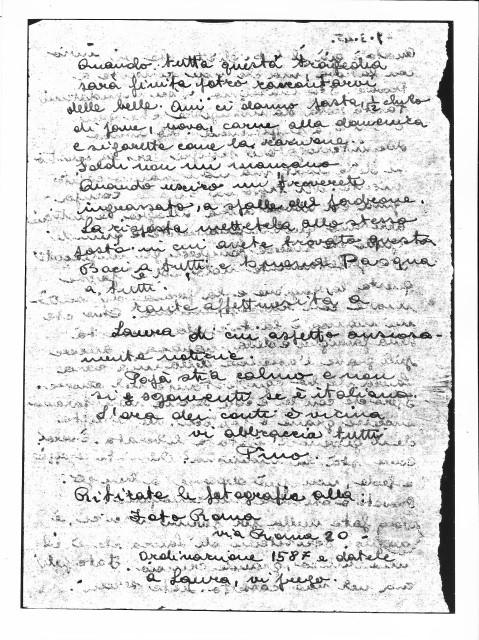 Quando tutta questa tragedia
sarà finita potrò raccontarvi
delle belle. Qui ci danno pasta, ½ chilo
di pane, uova, carne alla domenica
e sigarette come la razione.
Soldi non mi mancano
Quando uscirò mi troverete
ingrassato, a spalle del padrone.
La risposta mettetela allo stesso
posto in cui avete trovato questa
Baci a tutti e buona Pasqua
a tutti.
tante affettuosità a
Laura di cui aspetto ansiosa-
mente notizie.
Papà stia calmo e non
si sgomenti se è italiano.
L'ora dei conti è vicina
vi abbraccia tutti
Pino.
Ritirate le fotografie alla:
Foto Roma
via Roma 20 -
Ordinazione 1587 e datele
a Laura, vi prego.